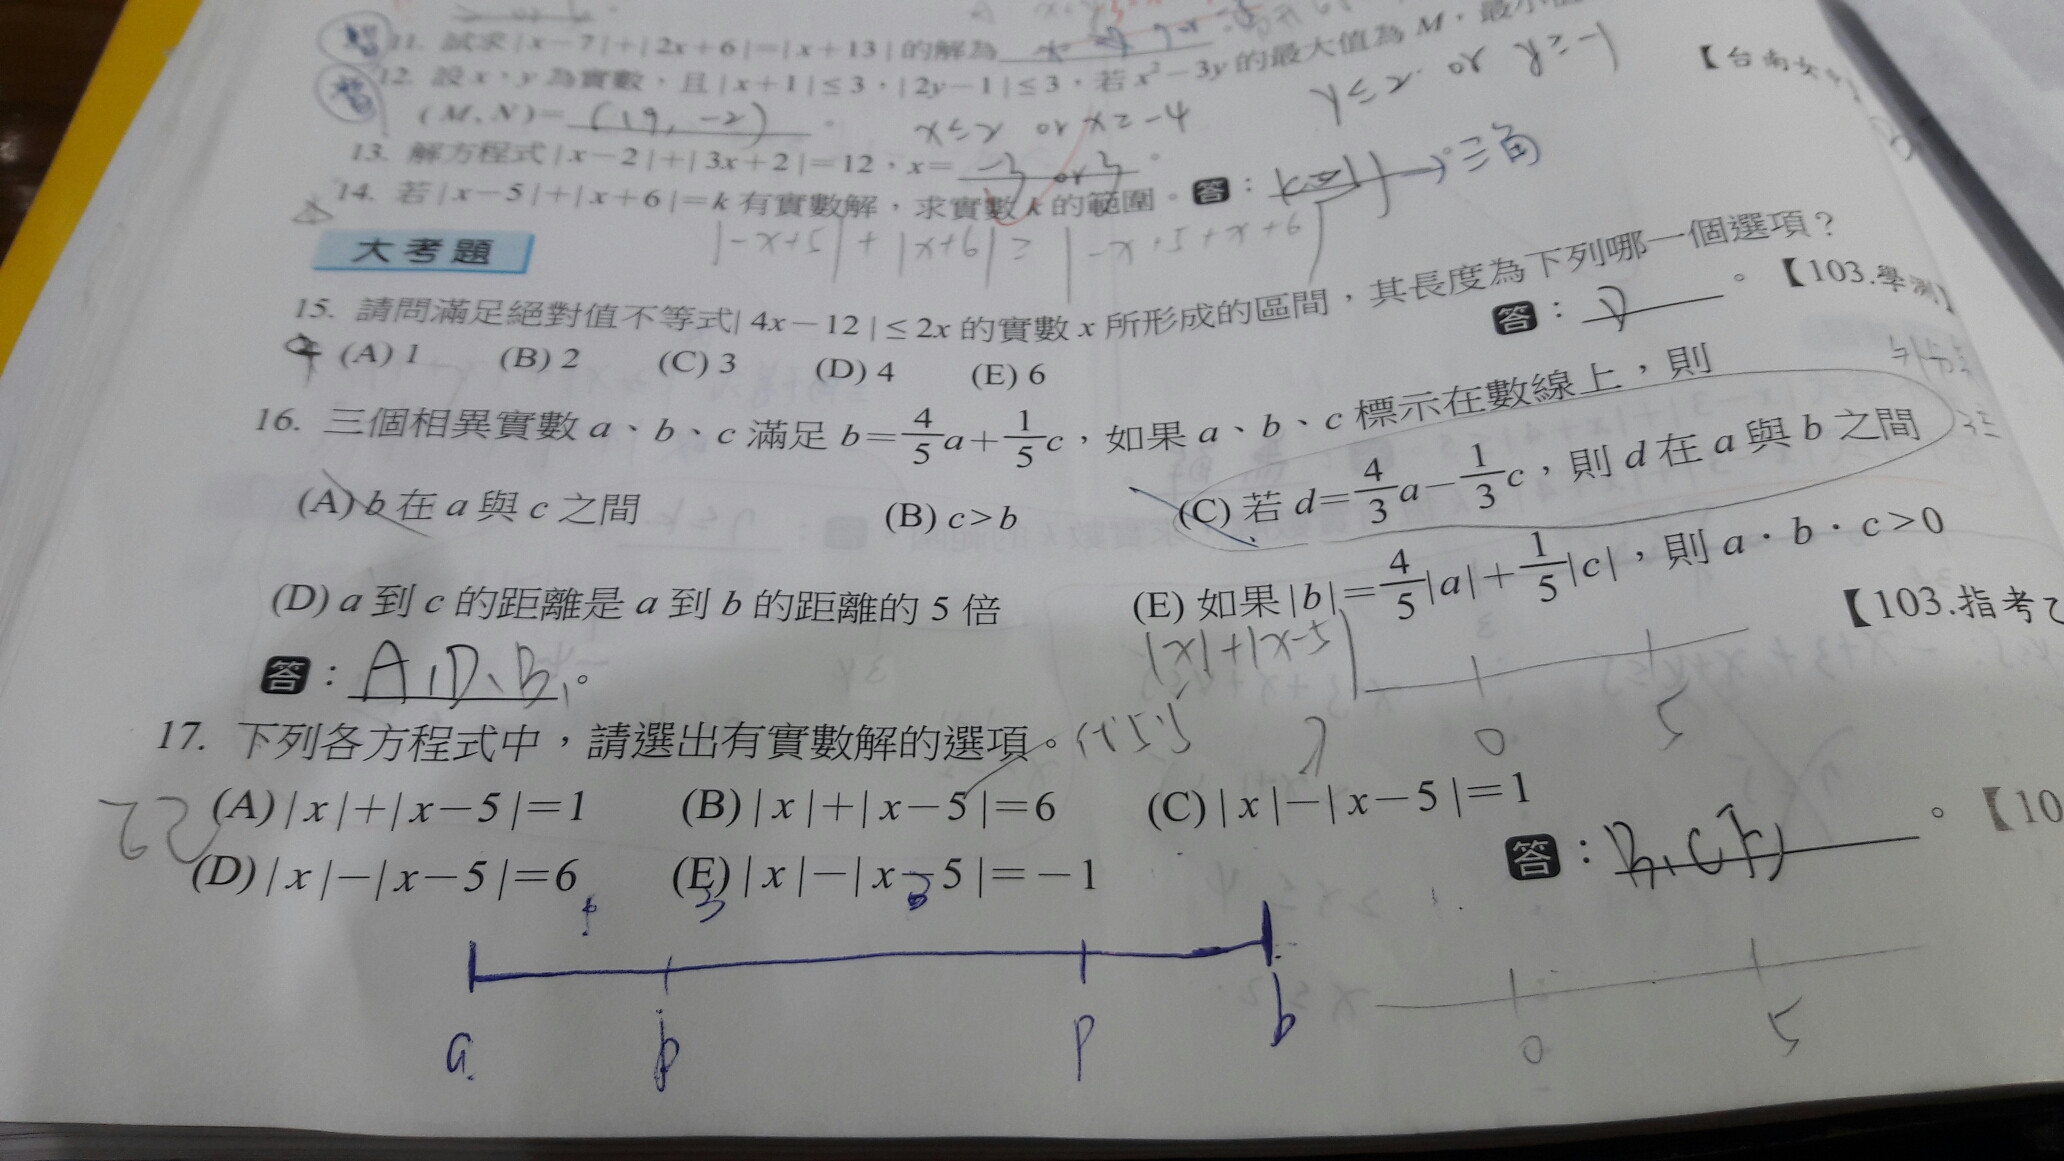 11. 試求|x-7|+|2x+6|=|x+13|的解為
12. 設x,y為實數,且|x+1|≤3,|2y-1|≤3,若x²-3y的最大值為M,最小值
(M,N)= (19, -2) 。 x≤2 or x≥-4 y≤2 or y≥-1
【台南女中】
13. 解方程式|x-2|+|3x+2|=12,x= -3 or 3 。
14. 若|x-5|+|x+6|=k有實數解,求實數k的範圍。答: k≥11 → 三角
|-x+5|+|x+6| ≥ |-x+5+x+6|
大考題
15. 請問滿足絕對值不等式|4x-12|≤2x的實數x所形成的區間,其長度為下列哪一個選項?
(A) 1 (B) 2 (C) 3 (D) 4 (E) 6 答: D 。【103.學測】
16. 三個相異實數a、b、c滿足b=4/5a+1/5c,如果a、b、c標示在數線上,則
(A) b在a與c之間 (B) c>b (C) 若d=4/3a-1/3c,則d在a與b之間
(D) a到c的距離是a到b的距離的5倍 (E) 如果|b|=4/5|a|+1/5|c|,則a·b·c>0
【103.指考乙
答: A、D、B 。
|x|+|x-5|
0 5
17. 下列各方程式中,請選出有實數解的選項。
(A)|x|+|x-5|=1 (B)|x|+|x-5|=6 (C)|x|-|x-5|=1
(D)|x|-|x-5|=6 (E)|x|-|x-5|=-1 答: B、C 。【10
3
a p p b
0 5